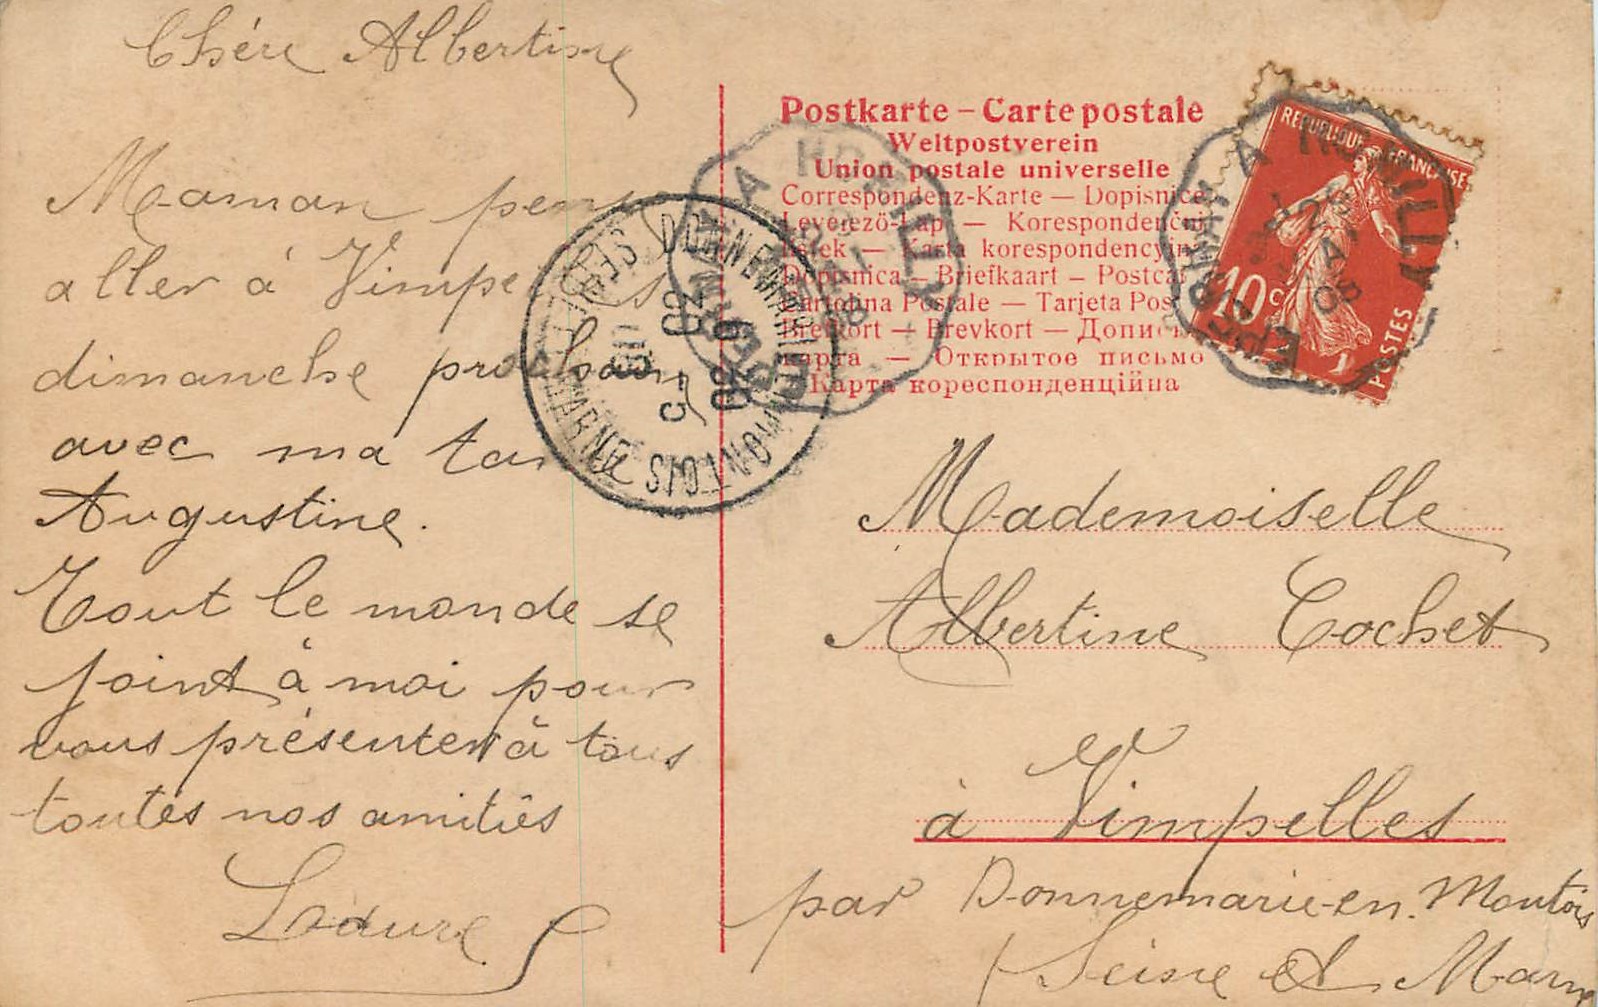 Chère Albertine
Maman pense
aller à Vimpelles
dimanche prochain
avec ma tante
Augustine.
Tout le monde se
joint à moi pour
vous présenter à tous
toutes nos amitiés
Postkarte – Carte postale
Weltpostverein
Union postale universelle
Correspondenz-Karte — Dopisnice
Levelező-Lap — Korespondenčni
listek — Karta korespondencyjna
Dopisnica — Briefkaart — Postcard
Cartolina Postale — Tarjeta Postal
Brefkort — Brevkort — Дописна
карта — Открытое письмо
Карта кореспонденційна
REPUBLIQUE FRANÇAISE
10 c
POSTES
A ROMILLY
DONNEMARIE EN MONTOIS
Mademoiselle
Albertine Cochet
à Vimpelles
par Donnemarie-en-Montois
(Seine et Marne